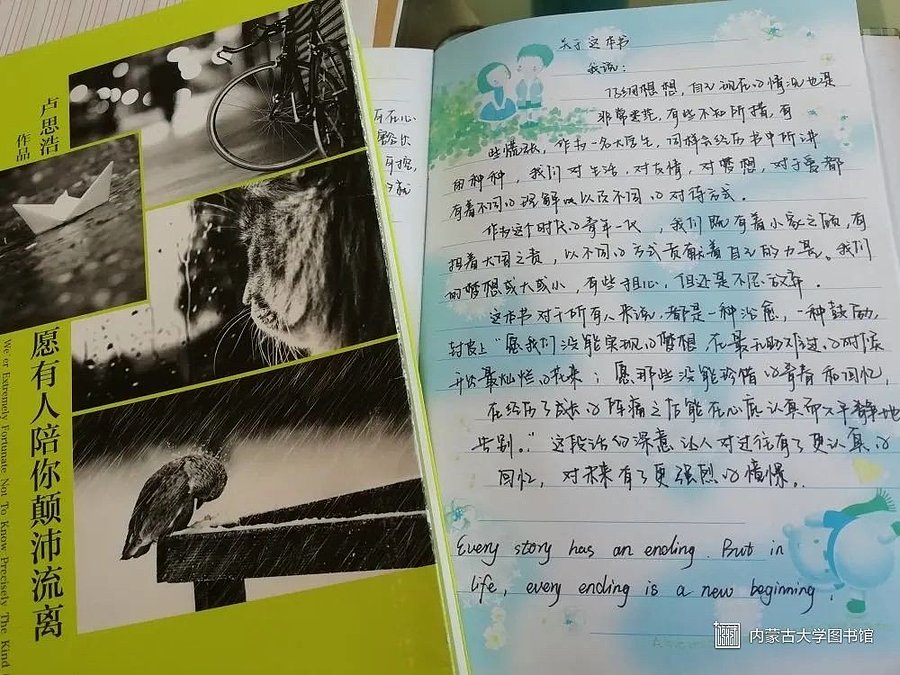 卢思浩
作品
愿有人陪你颠沛流离
We're Extremely Fortunate Not To Know Precisely The Kind
关于这本书
我说:
仔细想想，自己现在的情况也是
非常迷茫，有些不知所措，有
些慌张，作为一名大学生，同样会经历书中所讲
的种种，我们对生活，对友情，对梦想，对于爱都
有着不同的理解以及不同的对待方式。
作为这个时代的青年一代，我们既有着小家之顾，有
担着大国之责，以不同的方式贡献着自己的力量。我们
的梦想或大或小，有些担心，但还是不愿放弃。
这本书对于所有人来说，都是一种治愈，一种鼓励，
封皮上“愿我们没能实现的梦想在最无助难过的时候
开出最灿烂的花来；愿那些没能珍惜的青春和回忆，
在经历了成长的阵痛之后能在心底认真而又平静地
告别。”这段话的深意让人对过往有了更认真的
回忆，对未来有了更强烈的憧憬。
Every story has an ending. But in
life, every ending is a new beginning.
内蒙古大学图书馆